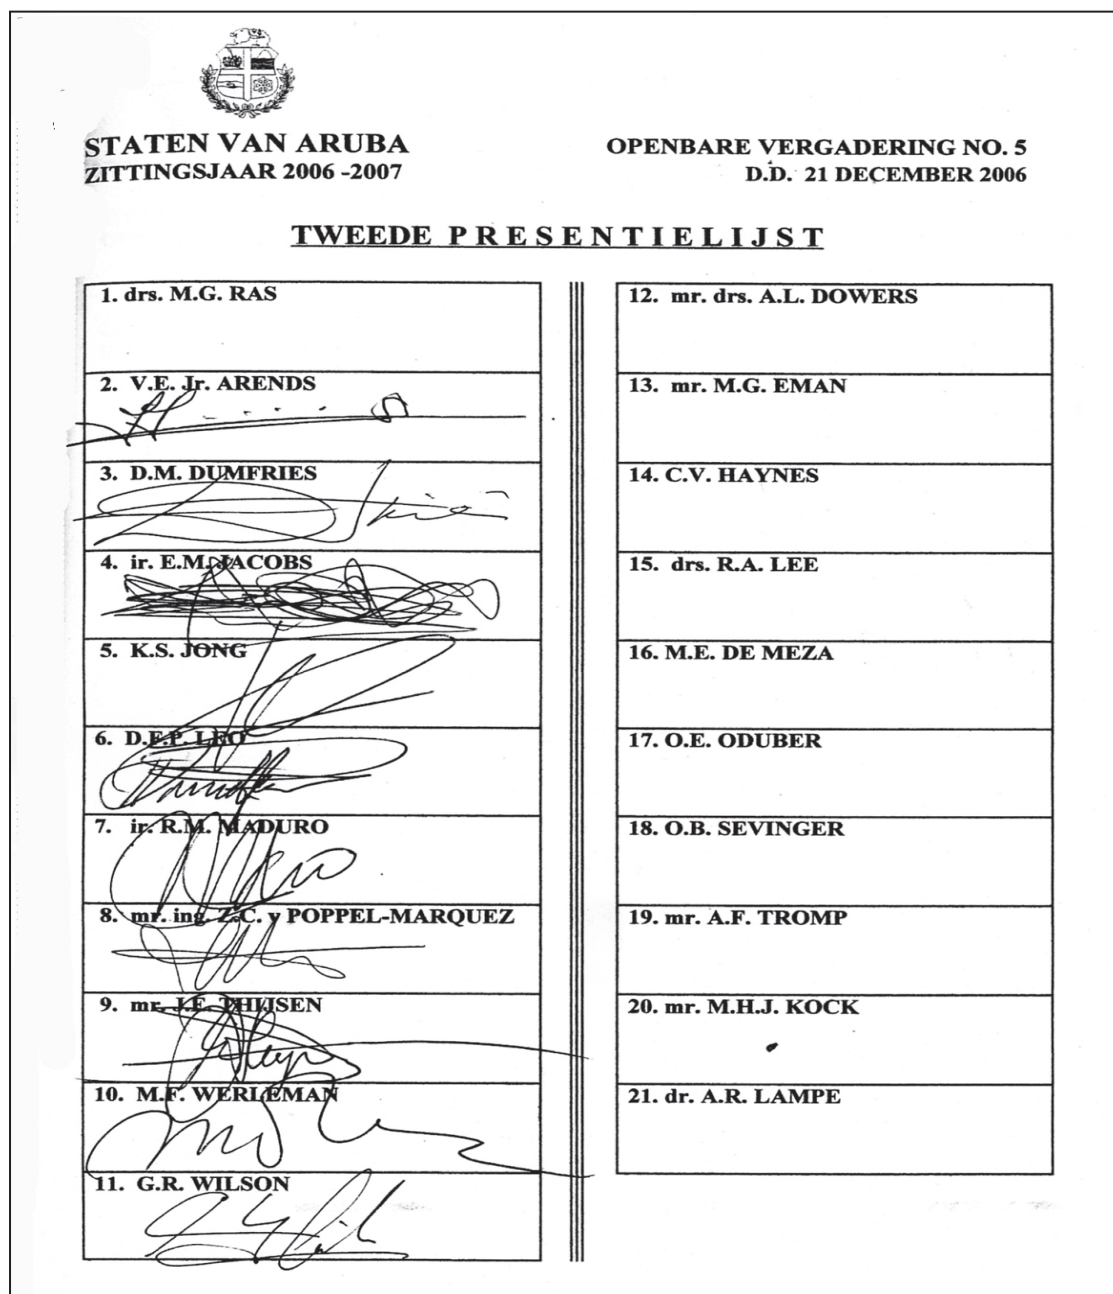 STATEN VAN ARUBA
ZITTINGSJAAR 2006 -2007
OPENBARE VERGADERING NO. 5
D.D. 21 DECEMBER 2006
TWEEDE PRESENTIELIJST
1. drs. M.G. RAS
2. V.E. Jr. ARENDS
3. D.M. DUMFRIES
4. ir. E.M. JACOBS
5. K.S. JONG
6. D.E.P. LEO
7. ir. R.M. MADURO
8. mr. ing. Z.C. v POPPEL-MARQUEZ
9. mr. J.E. THIJSEN
10. M.F. WERLEMAN
11. G.R. WILSON
12. mr. drs. A.L. DOWERS
13. mr. M.G. EMAN
14. C.V. HAYNES
15. drs. R.A. LEE
16. M.E. DE MEZA
17. O.E. ODUBER
18. O.B. SEVINGER
19. mr. A.F. TROMP
20. mr. M.H.J. KOCK
21. dr. A.R. LAMPE